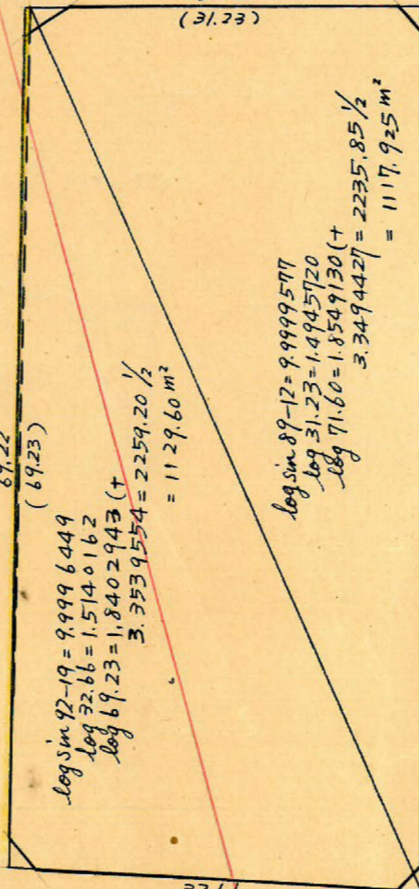 (31.23)
69.22
(69.23)
log sin 92-19 = 9.9996449
log 32.66 = 1.5140162
log 69.23 = 1.8402943 (+
3.3539554 = 2259.20 1/2
= 1129.60 m²
log sin 89-12 = 9.9999577
log 31.23 = 1.4945720
log 71.60 = 1.8549130 (+
3.3494427 = 2235.85 1/2
= 1117.925 m²